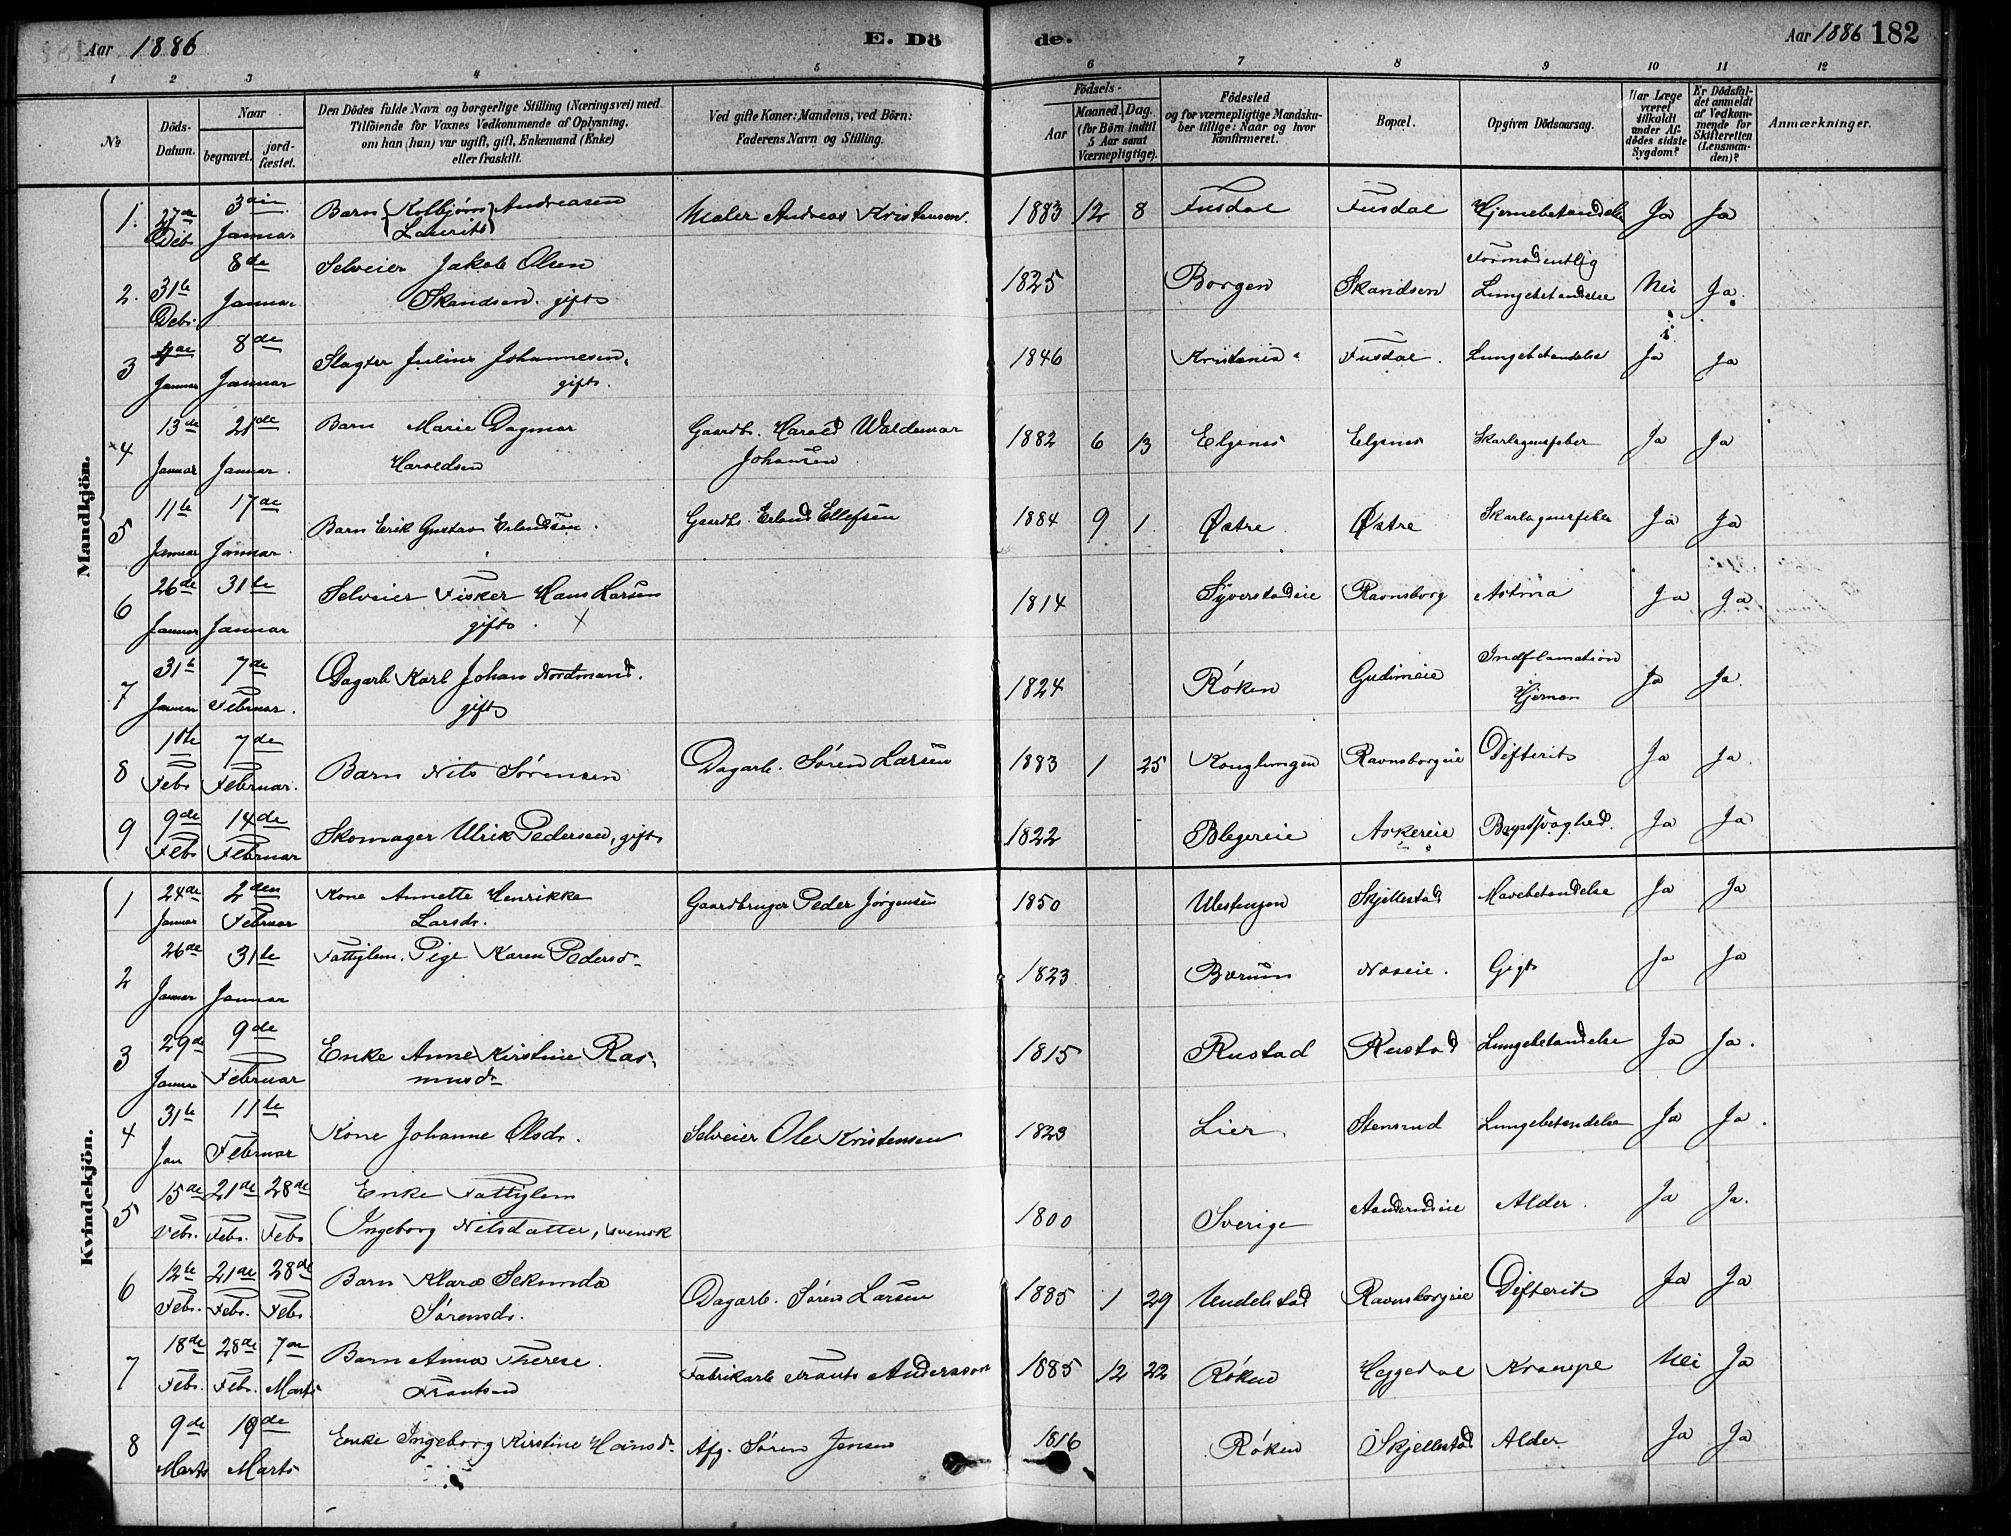 Aar 1886 E. Dö
de. Aar 1886 182
1 2 3 4 5
6 7 8 9 10 11 12
№
Döds-Datum.
Naar
begravet. jord-fæstet.
Den Dödes fulde Navn og borgerlige Stilling (Næringsvei) med
Tilföiende for Voxnes Vedkommende af Oplysning.
om han (hun) var ugift, gift, Enkemand (Enke)
eller fraskilt.
Ved gifte Koner: Mandens, ved Börn:
Faderens Navn og Stilling.
Födsels-
Aar Maaned. Dag.
(for Börn indtil
5 Aar samt
Værnepligtige).
Födested
og for værnepligtige Mandska-
ber tillige: Naar og hvor
Konfirmeret.
Bopæl.
Opgiven Dödsaarsag.
Har Læge
været
tilkaldt
under Af-
dödes sidste
Sygdom?
Er Dödsfal-
det anmeldt
af Vedkom-
mende for
Skifteretten
(Lensman-
den)?
Anmærkninger.
Mandkjön.
1. 27de Debr 3die Januar Barn Kolbjørn Laurits Andreasen Maler Andreas Kristensen 1883 12 8 Fusdal Fusdal Hjernebetændelse Ja Ja
2. 31te Debr. 8de Januar Selveier Jakob Olsen Skandsen. gift 1825 Borgen Skandsen Formodentlig Lungebetændelse Nei Ja.
3 Januar 8de Januar Slagter Julius Johannesen, gift. 1846 Kristania Fusdal. Lungebetændelse Ja Ja
×4 13de Januar 21de Januar. Barn Marie Dagmar Haroldsen Gaardbr. Harald Waldemar Johansen 1882 6 13 Elgenes Elgenes Skarlagensfeber Ja Ja
5 11te Januar 17de Januar. Barn Erik Gustav Erlandsen. Gaardbr. Erland Ellefsen 1884 9 1. Østre. Østre Skarlagensfeber Ja Ja
6 26de Januar 31te Januar Selveier Fisker Hans Larsen gift. × 1814 Syverstadeie Ravnsborg Astma Ja Ja
7 31te Januar 7de Februar. Dagarb Karl Johan Nordmand. gift 1824 Røken Gudimeie Indflamation Hjernen Ja Ja.
8 Febr 7de Februar. Barn Nils Sørensen Dagarb. Søren Larsen 1883 1 25 Konglungen Ravnsborgeie Difterit Ja Ja.
9 9de Febr 14de Februar Skomager Ulrik Pedersen, gift 1822 Blegereie Askereie Brystsvaghed. Ja Ja
Kvindekjön.
1 24de Januar 2den Februar Kone Annette Henrikke Larsdr. Gaardbruger Peder Jørgensen 1850 Ulestengen Skjellestad Mavebetændelse Ja Ja
2 26de Januar 31te Januar Fattiglem. Pige Karen Pedersdr 1823 Bærum Næseie. Gigt Ja Ja
3 29de Januar 9de Februar Enke Anne Kirstine Ras-musdr 1815 Rustad Rustad Lungebetændelse Ja Ja.
4 31te Jan 11te Februar Kone Johanne Olsdr. Selveier Ole Kristensen 1823 Lier. Stensrud Lungebetændelse Ja Ja.
5 15de Febr. 21de Febr. 28de Febr Enke Fattiglem Ingeborg Nilsdatter, svensk 1800 Sverige Alder. Ja Ja.
6 12te Febr. 21de Febr. 28de Febr. Barn Klara Sekunda Sørensdr. Dagarb. Søren Larsen 1885 1 29 Undelstad Ravnsborgeie Difterit Ja Ja
7 18de Febr. 28de Febr. 7de Marts Barn Anna Therese. Frantsen Fabrikarb Frants Andersson 1885 12 22 Røken Heggedal Krampe Nei Ja
8 9de Marts Marts Enke Ingeborg Kirstine Hansdr Afg. Søren Jensen 1816 Røken Skjellestad Alder Ja Ja